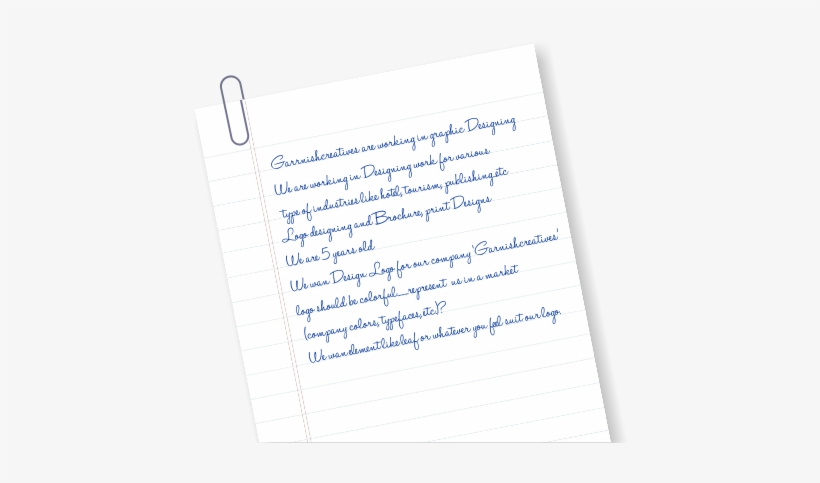 Garrnishcreatives are working in graphic Designing
We are working in Designing work for various
type of industries like hotel, tourism, publishing.etc
Logo designing and Brochure, print Designs
We are 5 years old
We wan Design Logo for our company 'Garnishcreatives'
logo should be colorful__represent us in a market
(company colors, typefaces, etc.)?
We wan element like leaf or whatever you feel suit our logo.